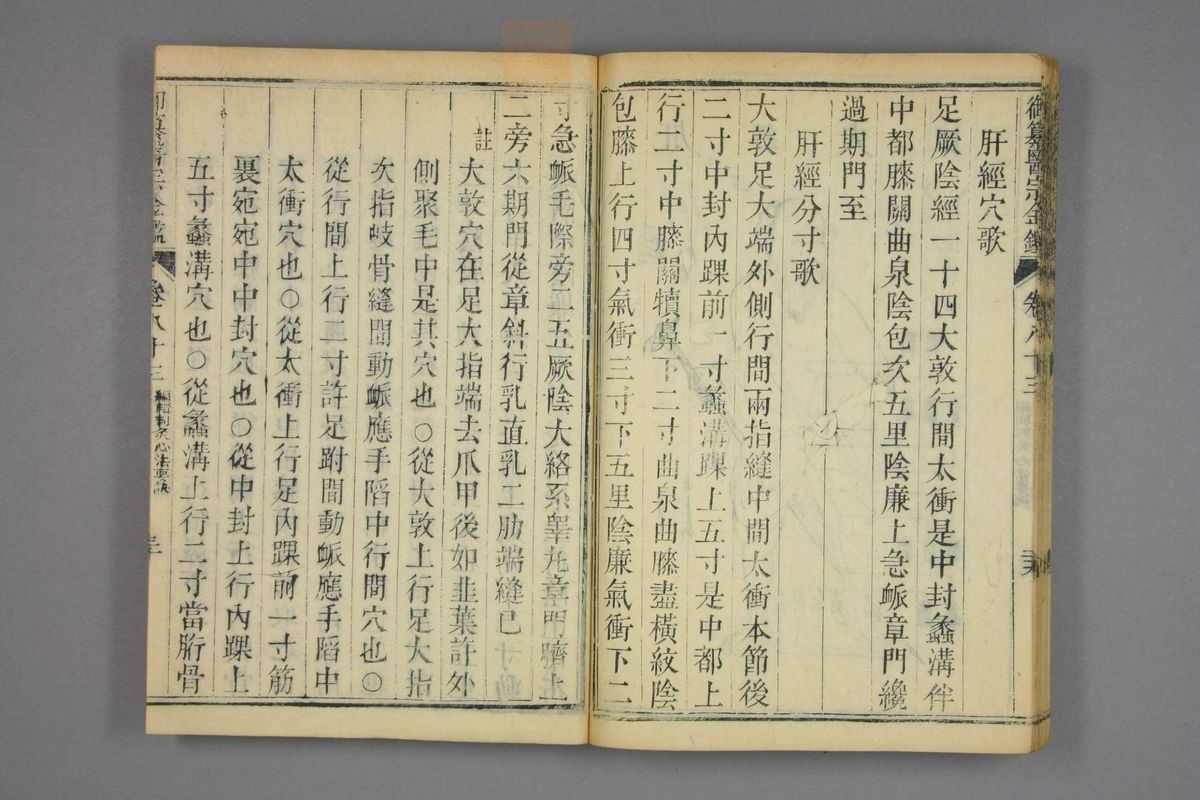 御纂醫宗金鑑 卷八十三
肝經穴歌
足厥陰經一十四大敦行間太衝是中封蠡溝伴
中都膝關曲泉陰包次五里陰廉上急脈章門纔
過期門至
肝經分寸歌
大敦足大端外側行間兩指縫中間太衝本節後
二寸中封內踝前一寸蠡溝踝上五寸是中都上
行二寸中膝關犢鼻下二寸曲泉曲膝盡橫紋陰
包膝上行四寸氣衝三寸下五里陰廉氣衝下二
寸急脈毛際旁二五厥陰大絡系睾丸章門臍上
二旁六期門從章斜行乳直乳二肋端縫已
註 大敦穴在足大指端去爪甲後如韭葉許外
側聚毛中是其穴也○從大敦上行足大指
次指岐骨縫間動脈應手陷中行間穴也○
從行間上行二寸許足跗間動脈應手陷中
太衝穴也○從太衝上行足內踝前一寸筋
裏宛宛中中封穴也○從中封上行內踝上
五寸蠡溝穴也○從蠡溝上行二寸當胻骨
御纂醫宗金鑑 卷八十三 編輯刺灸心法要訣